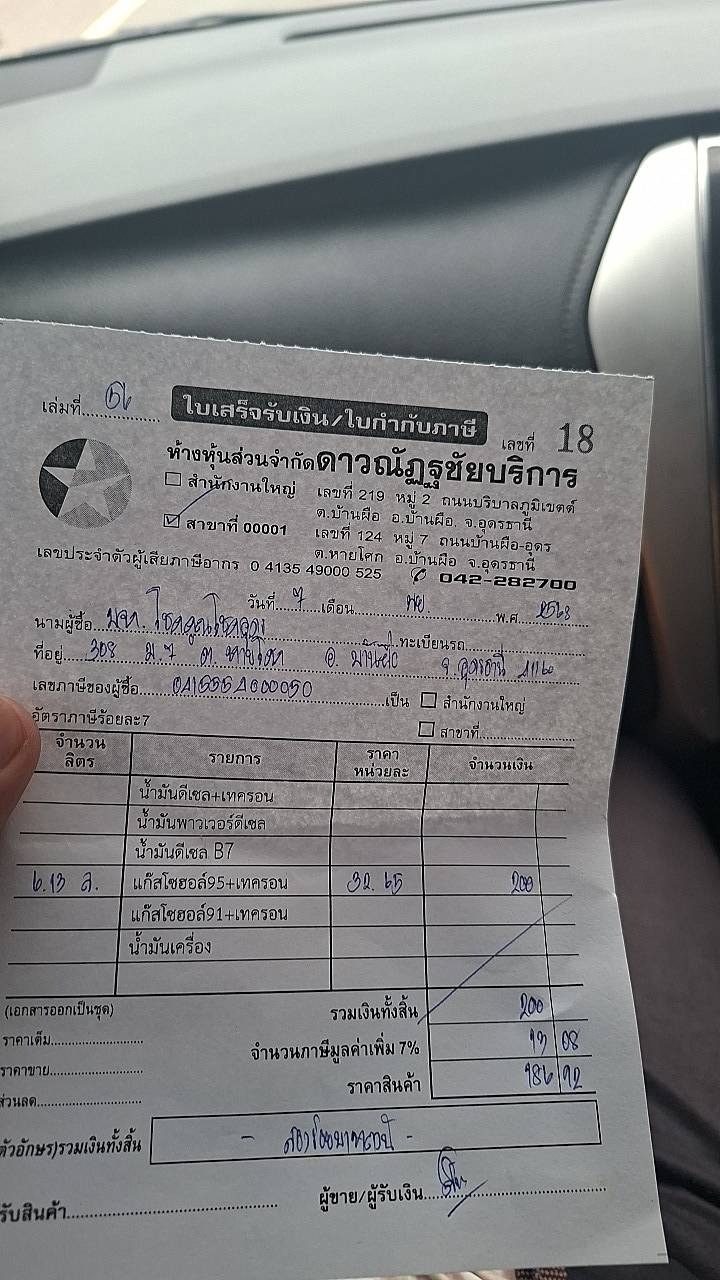 เล่มที่ 56 ใบเสร็จรับเงิน/ใบกำกับภาษี เลขที่ 18
ห้างหุ้นส่วนจำกัดดาวณัฏฐชัยบริการ
สำนักงานใหญ่ เลขที่ 219 หมู่ 2 ถนนบริบาลภูมิเขตต์
ต.บ้านผือ อ.บ้านผือ. จ.อุดรธานี
สาขาที่ 00001 เลขที่ 124 หมู่ 7 ถนนบ้านผือ-อุดร
ต.หายโศก อ.บ้านผือ จ.อุดรธานี
เลขประจำตัวผู้เสียภาษีอากร 0 4135 49000 525 ✆ 042-282700
วันที่ 7 เดือน พย. พ.ศ 2568
นามผู้ซื้อ บจก. ทะเบียนรถ
ที่อยู่ 308 ม.7 ต. หายโศก อ. บ้านผือ จ.อุดรธานี 41160
เลขภาษีของผู้ซื้อ เป็น สำนักงานใหญ่
อัตราภาษีร้อยละ7 สาขาที่
จำนวนลิตร รายการ ราคาหน่วยละ จำนวนเงิน
น้ำมันดีเซล+เทครอน
น้ำมันพาวเวอร์ดีเซล
น้ำมันดีเซล B7
6.13 ล. แก๊สโซฮอล์95+เทครอน 32.65 200
แก๊สโซฮอล์91+เทครอน
น้ำมันเครื่อง
(เอกสารออกเป็นชุด) รวมเงินทั้งสิ้น 200
ราคาเต็ม จำนวนภาษีมูลค่าเพิ่ม 7% 13 08
ราคาขาย ราคาสินค้า 186 92
ส่วนลด
ตัวอักษร)รวมเงินทั้งสิ้น - สองร้อยบาทถ้วน -
รับสินค้า ผู้ขาย/ผู้รับเงิน